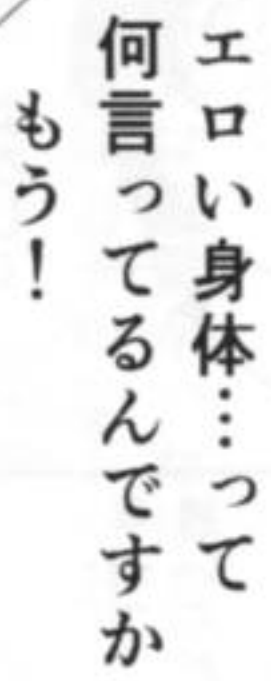 エロい身体…って
何言ってるんですか
もう！